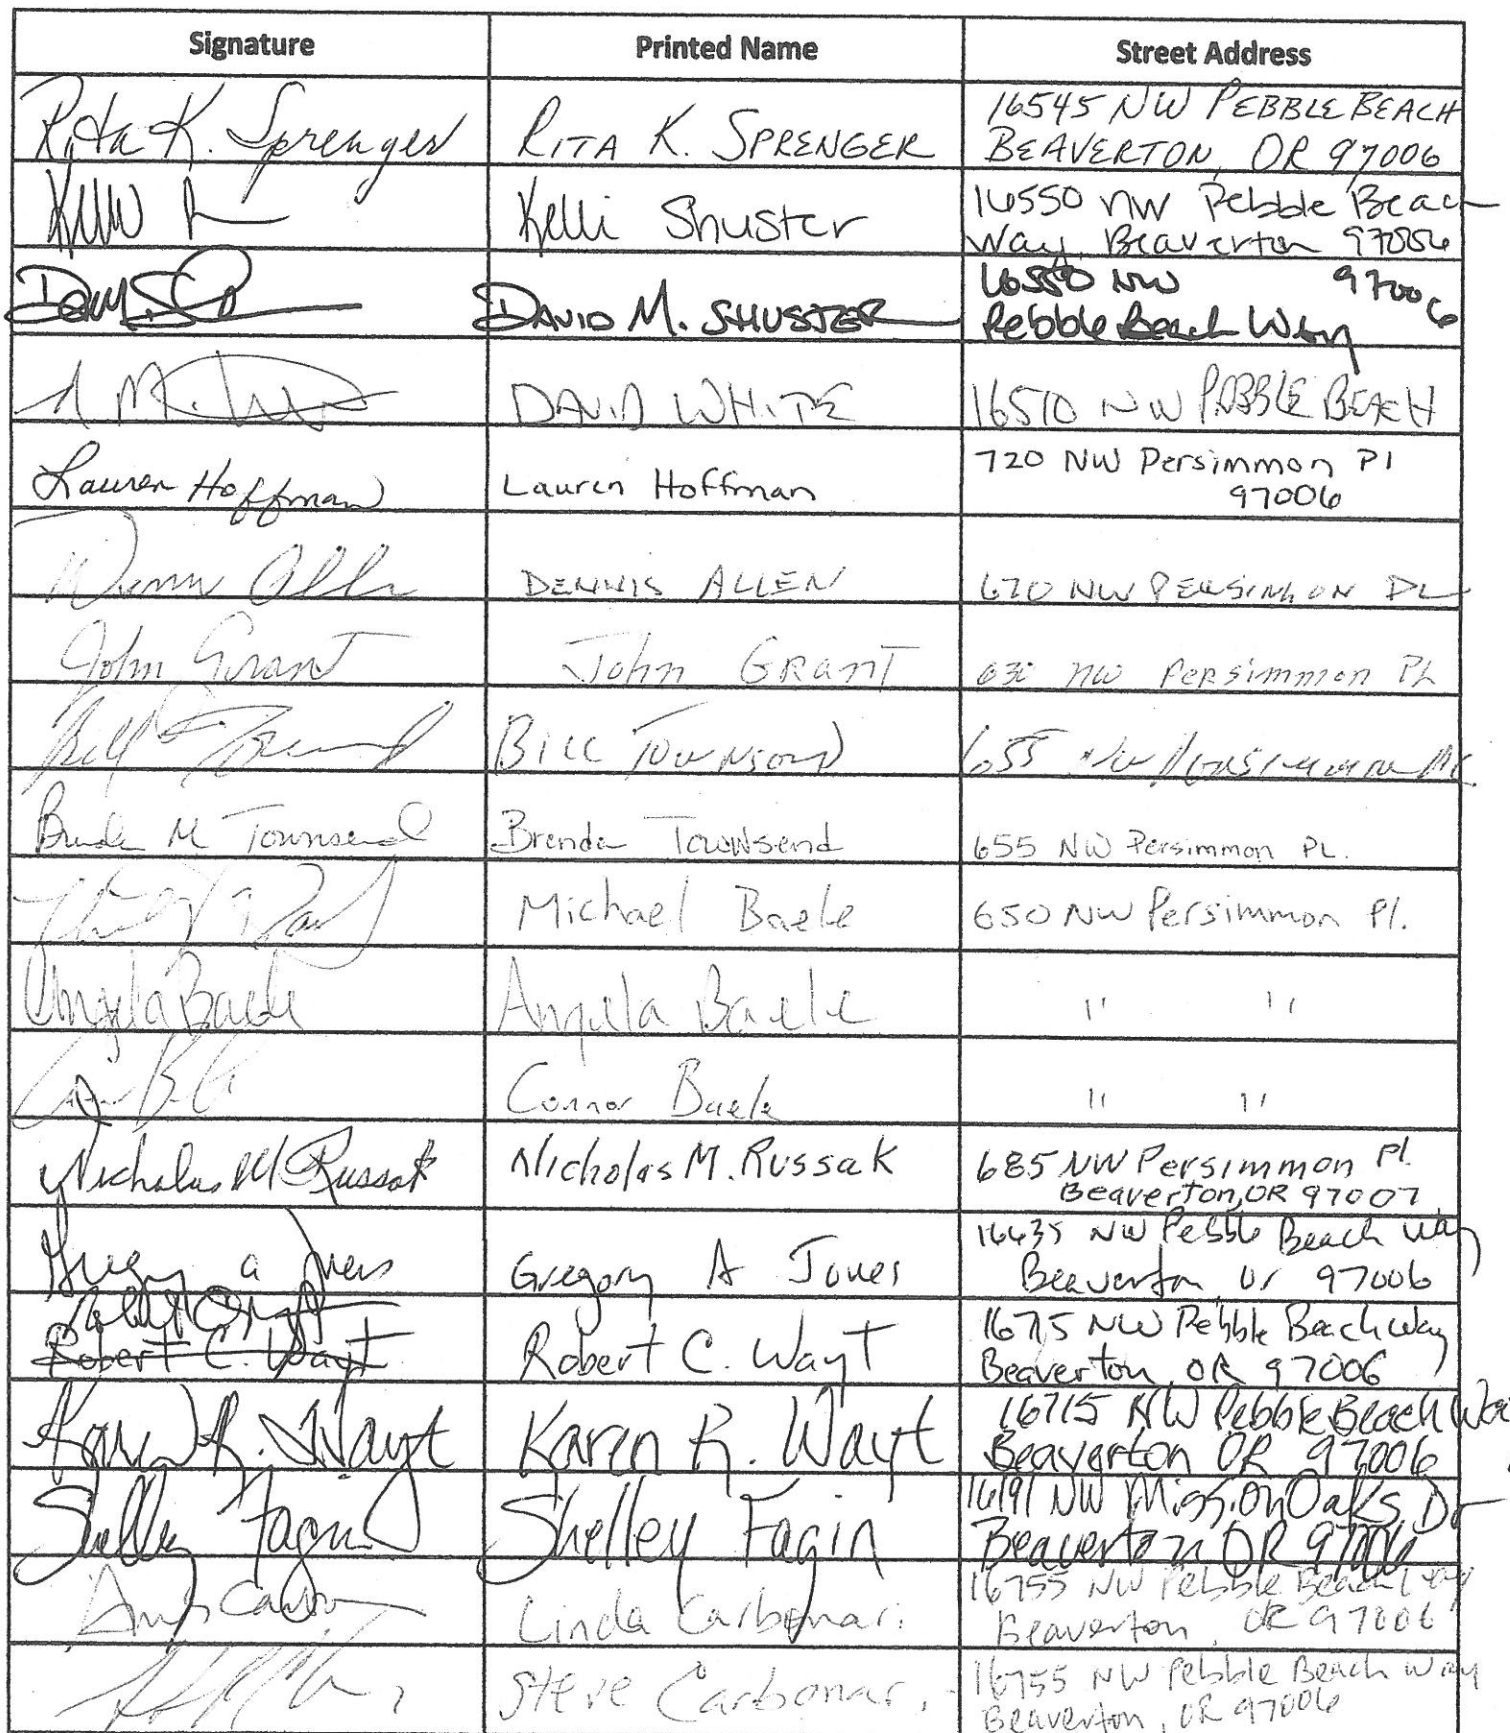 Signature Printed Name Street Address
Rita K. Sprenger RITA K. SPRENGER 16545 NW PEBBLE BEACH
BEAVERTON, OR 97006
Kelli Shuster 16550 NW Pebble Beach
Way, Beaverton 97006
DAVID M. SHUSTER 16550 NW 97006
Pebble Beach Way
DAVID WHITE 16510 NW PEBBLE BEACH
Lauren Hoffman Lauren Hoffman 720 NW Persimmon Pl
97006
DENNIS ALLEN 670 NW PERSIMMON PL
John Grant John GRANT 630 NW PERSIMMON PL
BILL TOWNSEND 655 NW
Brenda M Townsend Brenda Townsend 655 NW Persimmon PL.
Michael Baele 650 NW Persimmon Pl.
Angela Baele Angela Baele " "
Connor Baele " "
Nicholas M Russak Nicholas M. Russak 685 NW Persimmon Pl.
Beaverton, OR 97007
Gregory A Jones 16635 NW Pebble Beach Way
Beaverton, Or 97006
Robert C. Wayt Robert C. Wayt NW Pebble Beach Way
Beaverton, OR 97006
Karen R. Wayt Karen R. Wayt 16715 NW Pebble Beach
Beaverton OR 97006
Shelley Fagin Shelley Fagin 16191 NW Mission Oaks Dr
Beaverton OR 97006
Linda Carbonari 16755 NW Pebble Beach Way
Beaverton, OR 97006
Steve Carbonari 16755 NW Pebble Beach Way
Beaverton, OR 97006